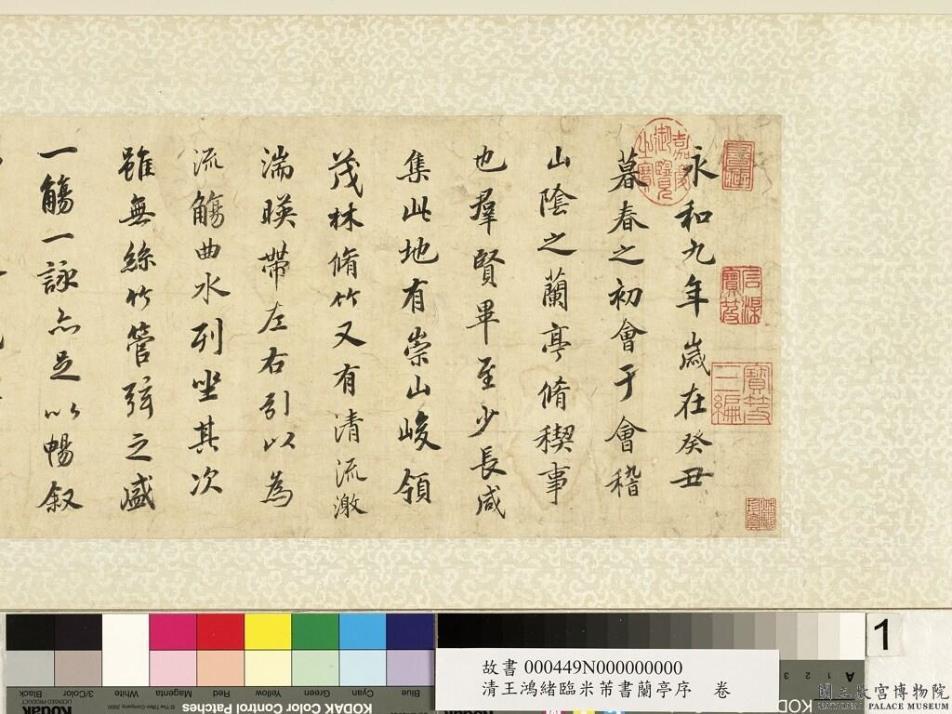 永和九年歲在癸丑
暮春之初會于會稽
山陰之蘭亭脩稧事
也羣賢畢至少長咸
集此地有崇山峻領
茂林脩竹又有清流激
湍暎帶左右引以為
流觴曲水列坐其次
雖無絲竹管弦之盛
一觴一詠亦足以暢叙
嘉慶御覽之寶
石渠寶笈
寶笈三編
1
故書 000449N000000000
清王鴻緒臨米芾書蘭亭序 卷
Blue Cyan Green Yellow Red Magenta White 3/Color Black
KODAK Color Control Patches
Kodak
A 1 2 3
國立故宮博物院
NATIONAL PALACE MUSEUM